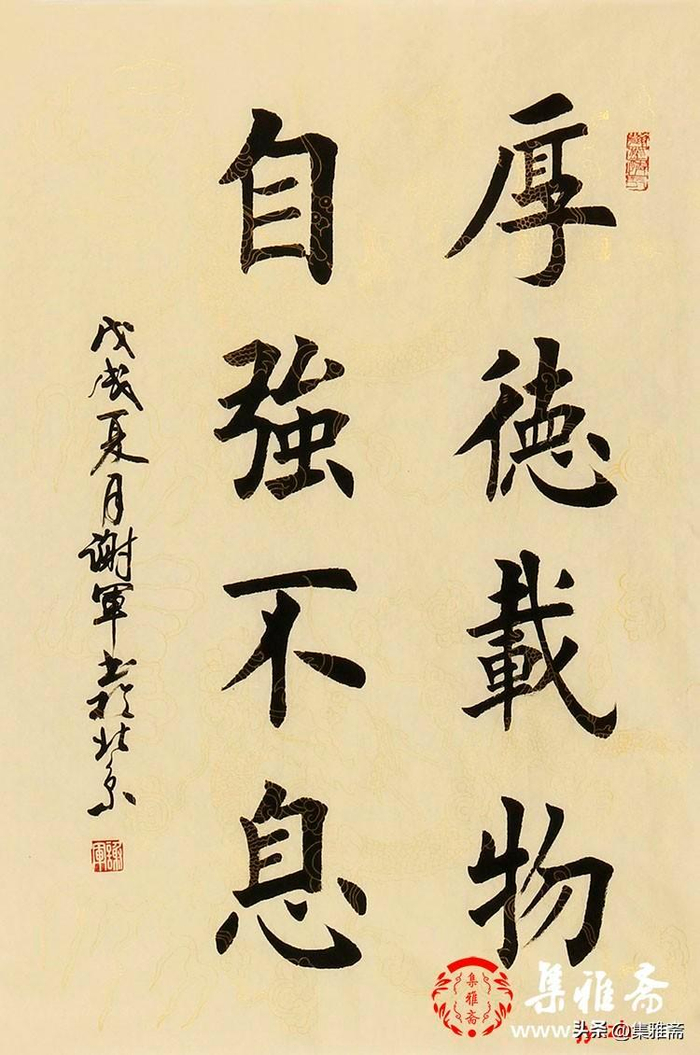 厚德載物
自強不息
戊戌夏月谢軍书於北京
謝軍
集雅斋
集雅斋
www.
头条@集雅斋